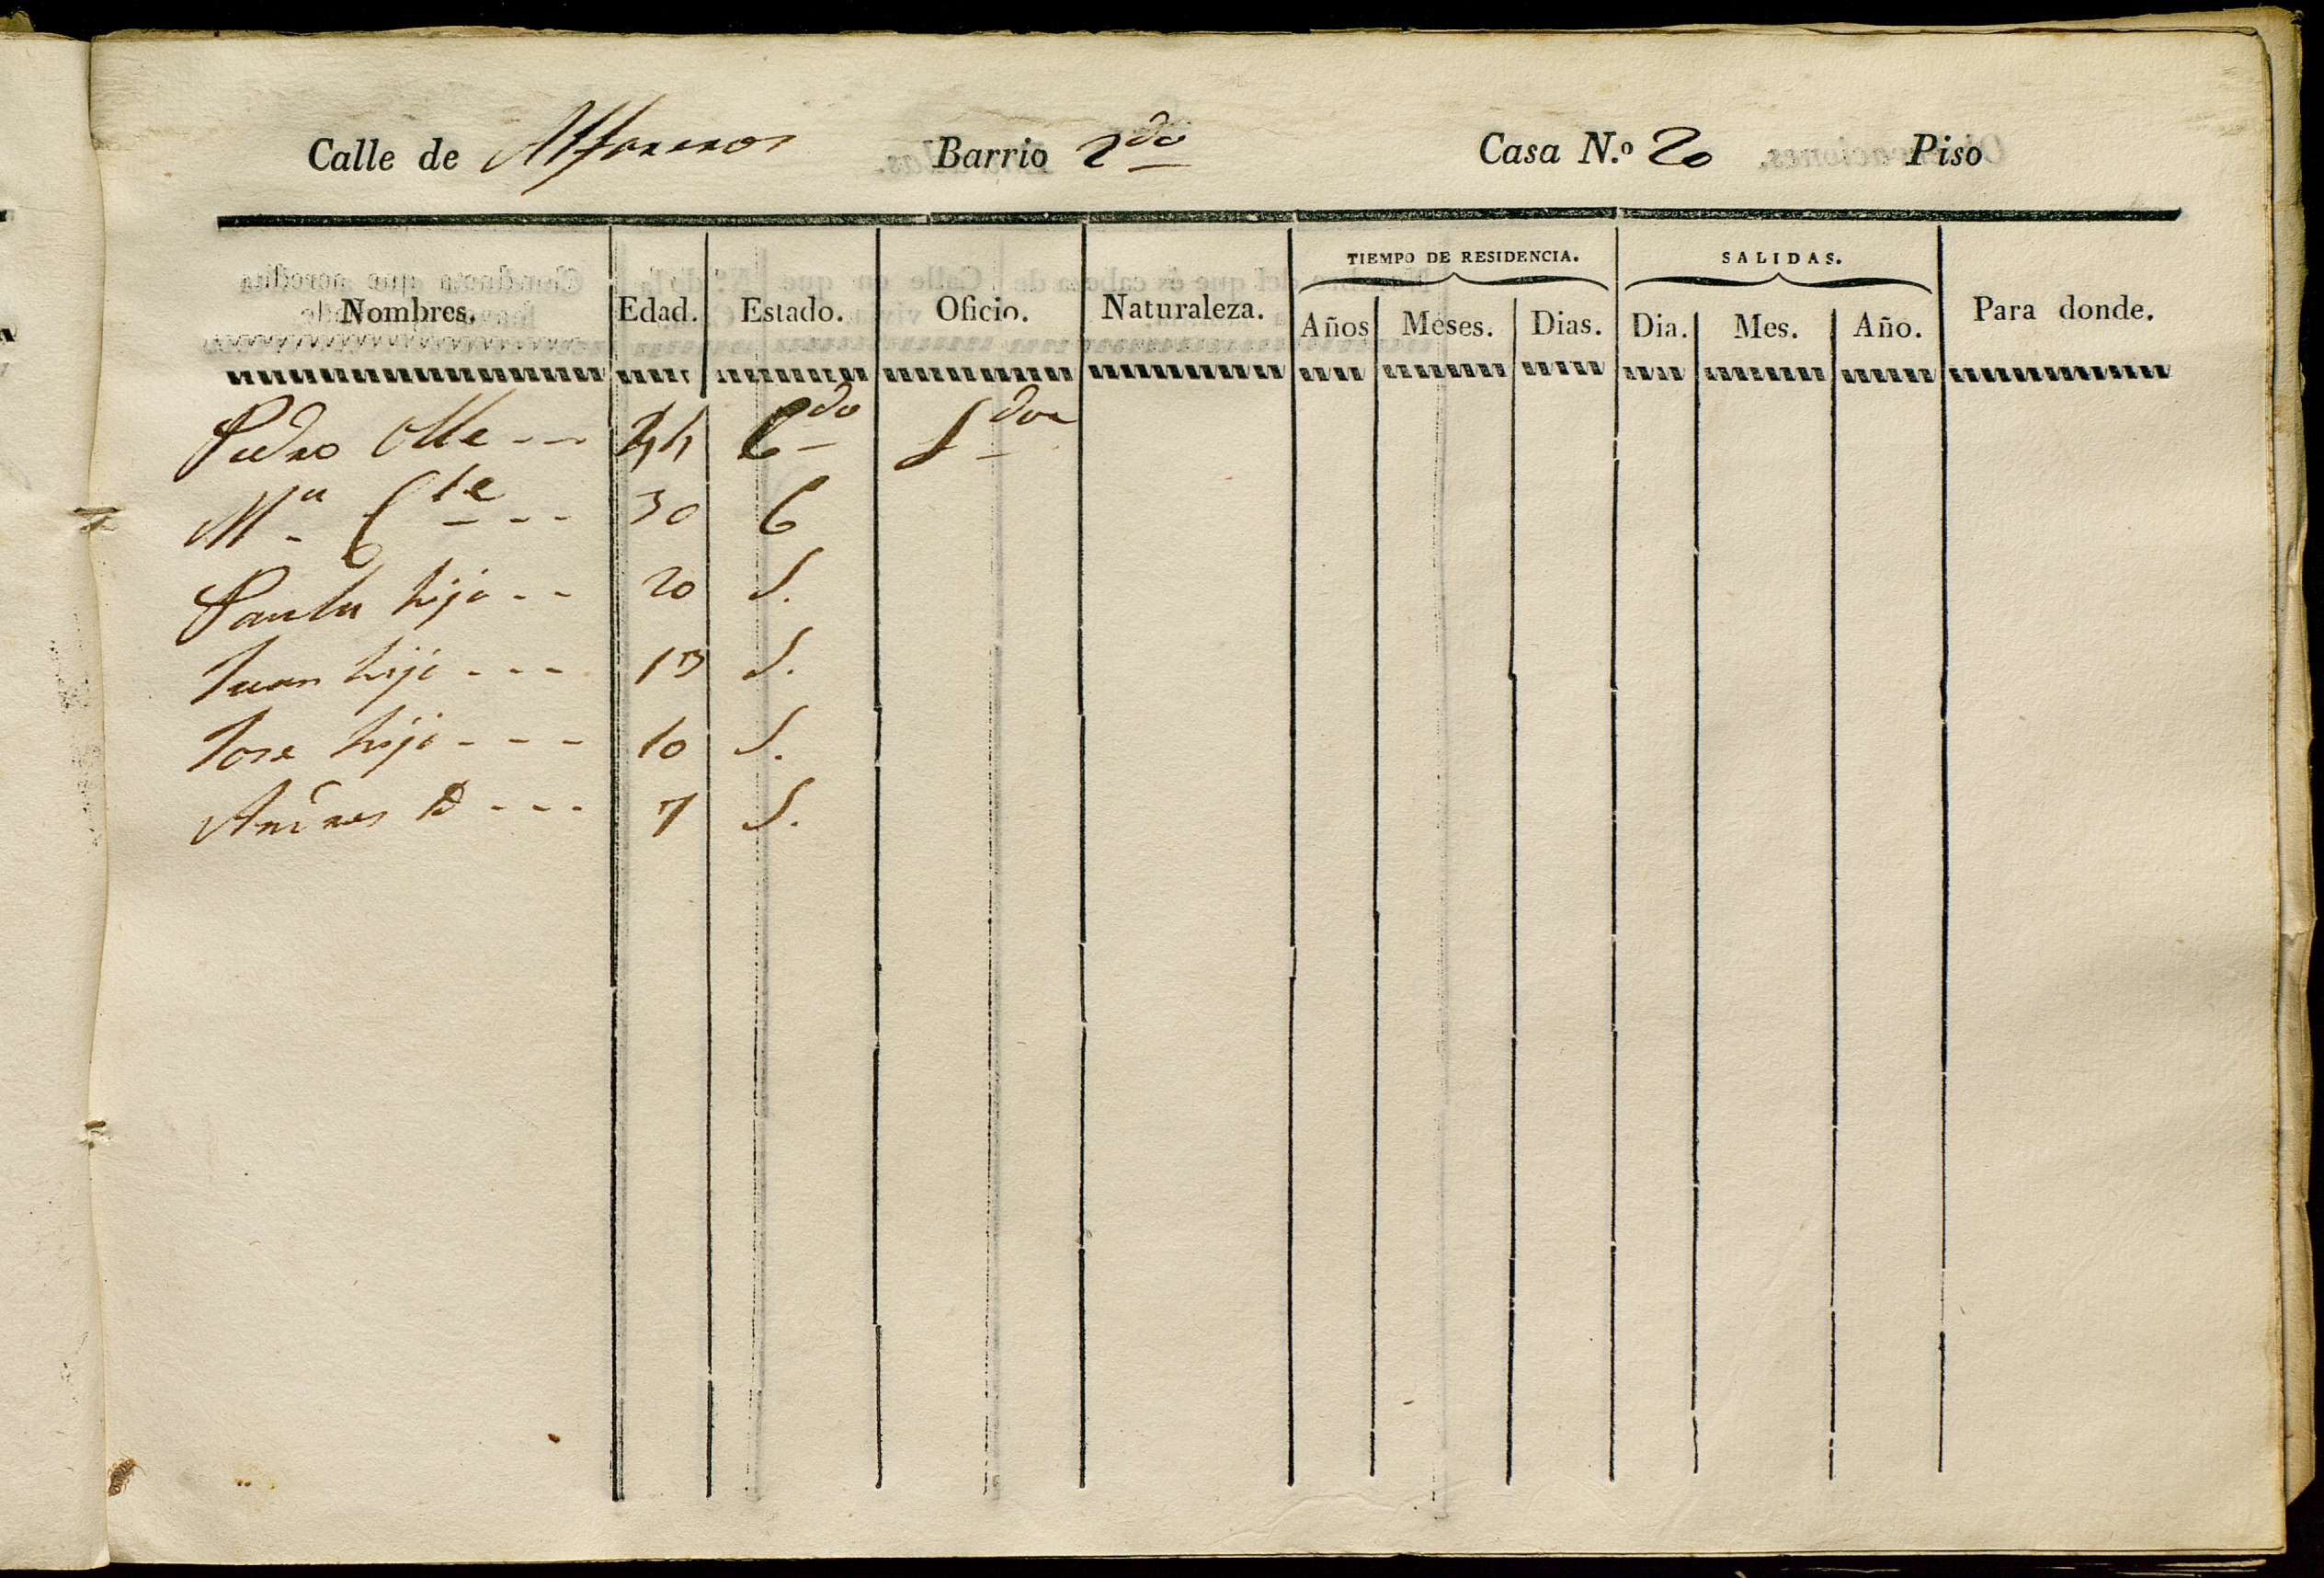 Calle de Alfareros Barrio 2do Casa N.o 20 Piso
TIEMPO DE RESIDENCIA. SALIDAS.
Nombres. Edad. Estado. Oficio. Naturaleza. Años Meses. Dias. Dia. Mes. Año. Para donde.
Pedro Olle 44 Cdo Jdor
Ma 30 C
Paula hija 20 S.
Juan hijo 13 S.
Jose hijo 10 S.
Andres 7 S.